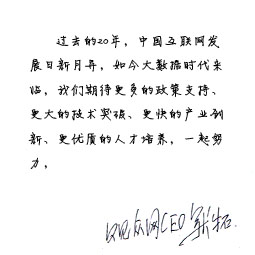 过去的20年，中国互联网发
展日新月异，如今大数据时代来
临，我们期待更多的政策支持、
更大的技术突破、更快的产业创
新、更优质的人才培养，一起努
力。
网CEO